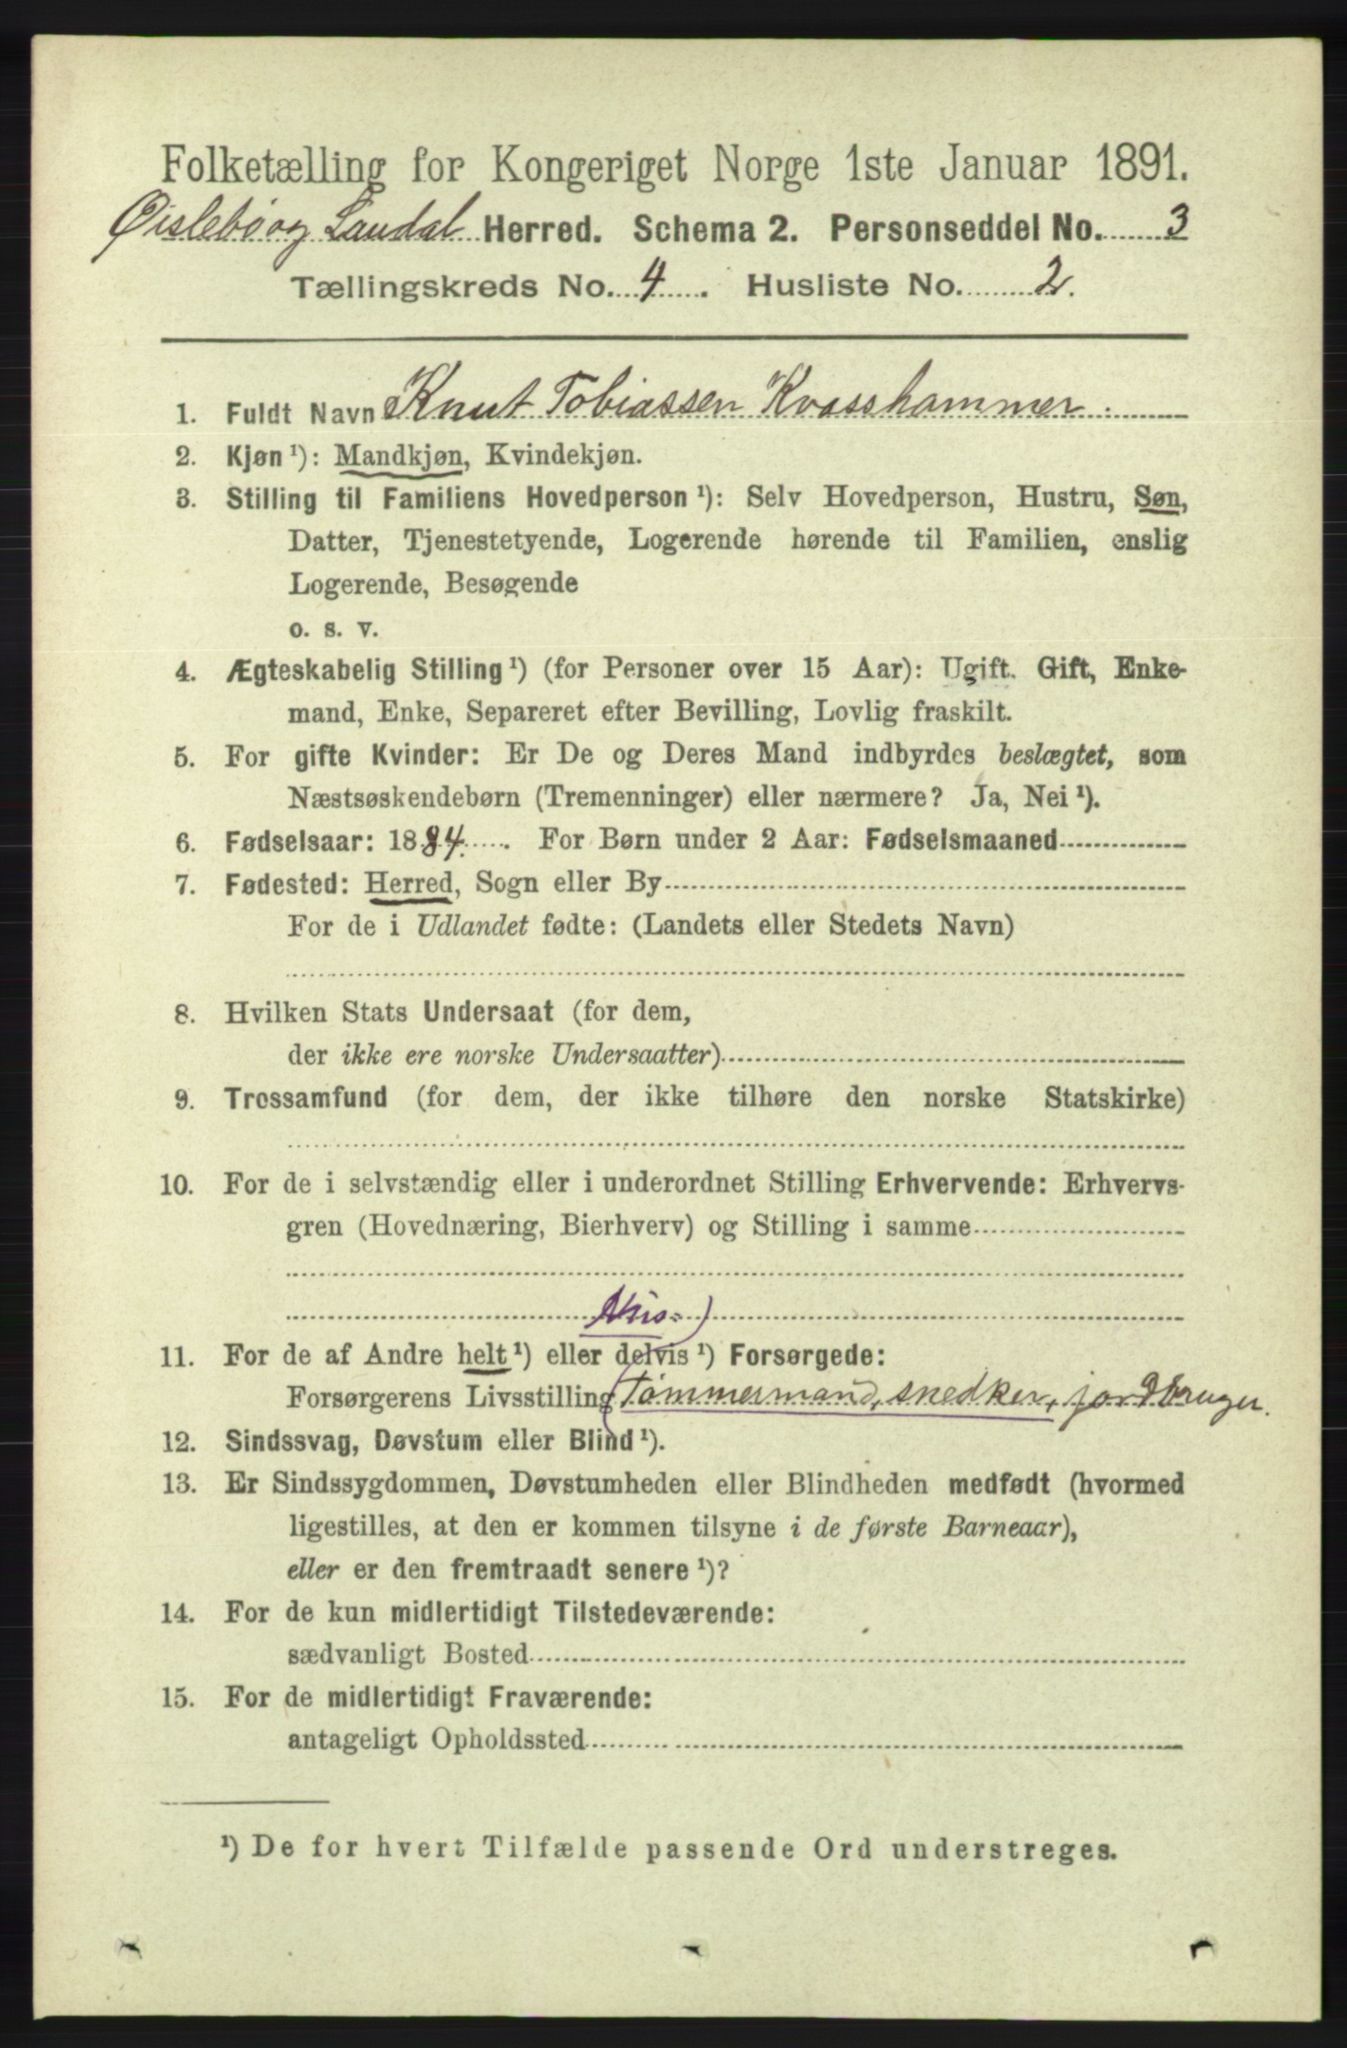 Folketælling for Kongeriget Norge 1ste Januar 1891.
Øislebø og Laudal Herred. Schema 2. Personseddel No. 3
Tællingskreds No. 4. Husliste No. 2.
1. Fuldt Navn Knut Tobiassen Kvasshammer.
2. Kjøn ¹): Mandkjøn, Kvindekjøn.
3. Stilling til Familiens Hovedperson ¹): Selv Hovedperson, Hustru, Søn,
Datter, Tjenestetyende, Logerende hørende til Familien, enslig
Logerende, Besøgende
o. s. v.
4. Ægteskabelig Stilling ¹) (for Personer over 15 Aar): Ugift. Gift, Enke-
mand, Enke, Separeret efter Bevilling, Lovlig fraskilt.
5. For gifte Kvinder: Er De og Deres Mand indbyrdes beslægtet, som
Næstsøskendebørn (Tremenninger) eller nærmere? Ja, Nei ¹).
6. Fødselsaar: 1884. For Børn under 2 Aar: Fødselsmaaned
7. Fødested: Herred, Sogn eller By
For de i Udlandet fødte: (Landets eller Stedets Navn)
8. Hvilken Stats Undersaat (for dem,
der ikke ere norske Undersaatter)
9. Trossamfund (for dem, der ikke tilhøre den norske Statskirke)
10. For de i selvstændig eller i underordnet Stilling Erhvervende: Erhvervs-
gren (Hovednæring, Bierhverv) og Stilling i samme
Hus-)
11. For de af Andre helt ¹) eller delvis ¹) Forsørgede:
Forsørgerens Livsstilling (Tømmermand, snedker, jordbruger.
12. Sindssvag, Døvstum eller Blind ¹).
13. Er Sindssygdommen, Døvstumheden eller Blindheden medfødt (hvormed
ligestilles, at den er kommen tilsyne i de første Barneaar),
eller er den fremtraadt senere ¹)?
14. For de kun midlertidigt Tilstedeværende:
sædvanligt Bosted
15. For de midlertidigt Fraværende:
antageligt Opholdssted
¹) De for hvert Tilfælde passende Ord understreges.